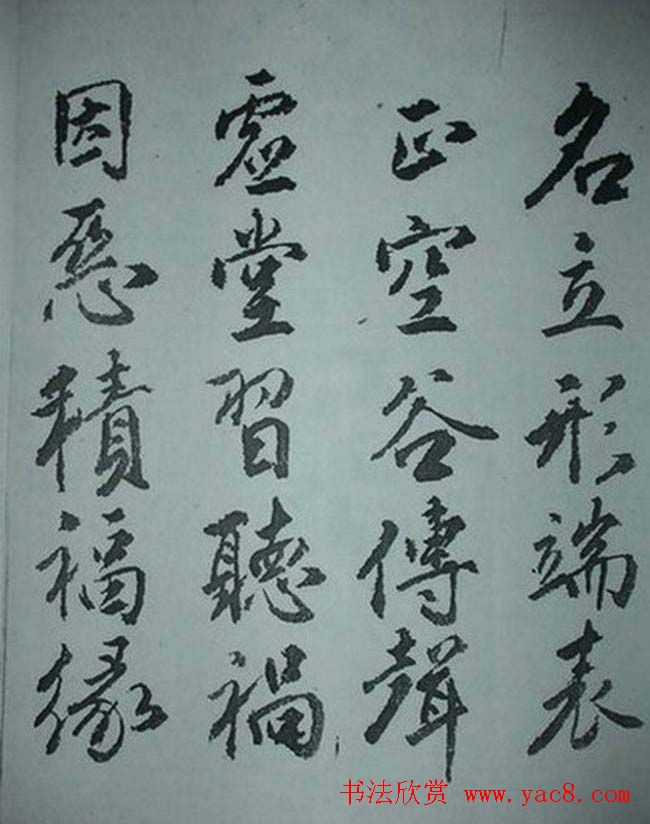 名立形端表
正空谷傳聲
虛堂習聽禍
因惡積福緣
书法欣赏 www.yac8.com